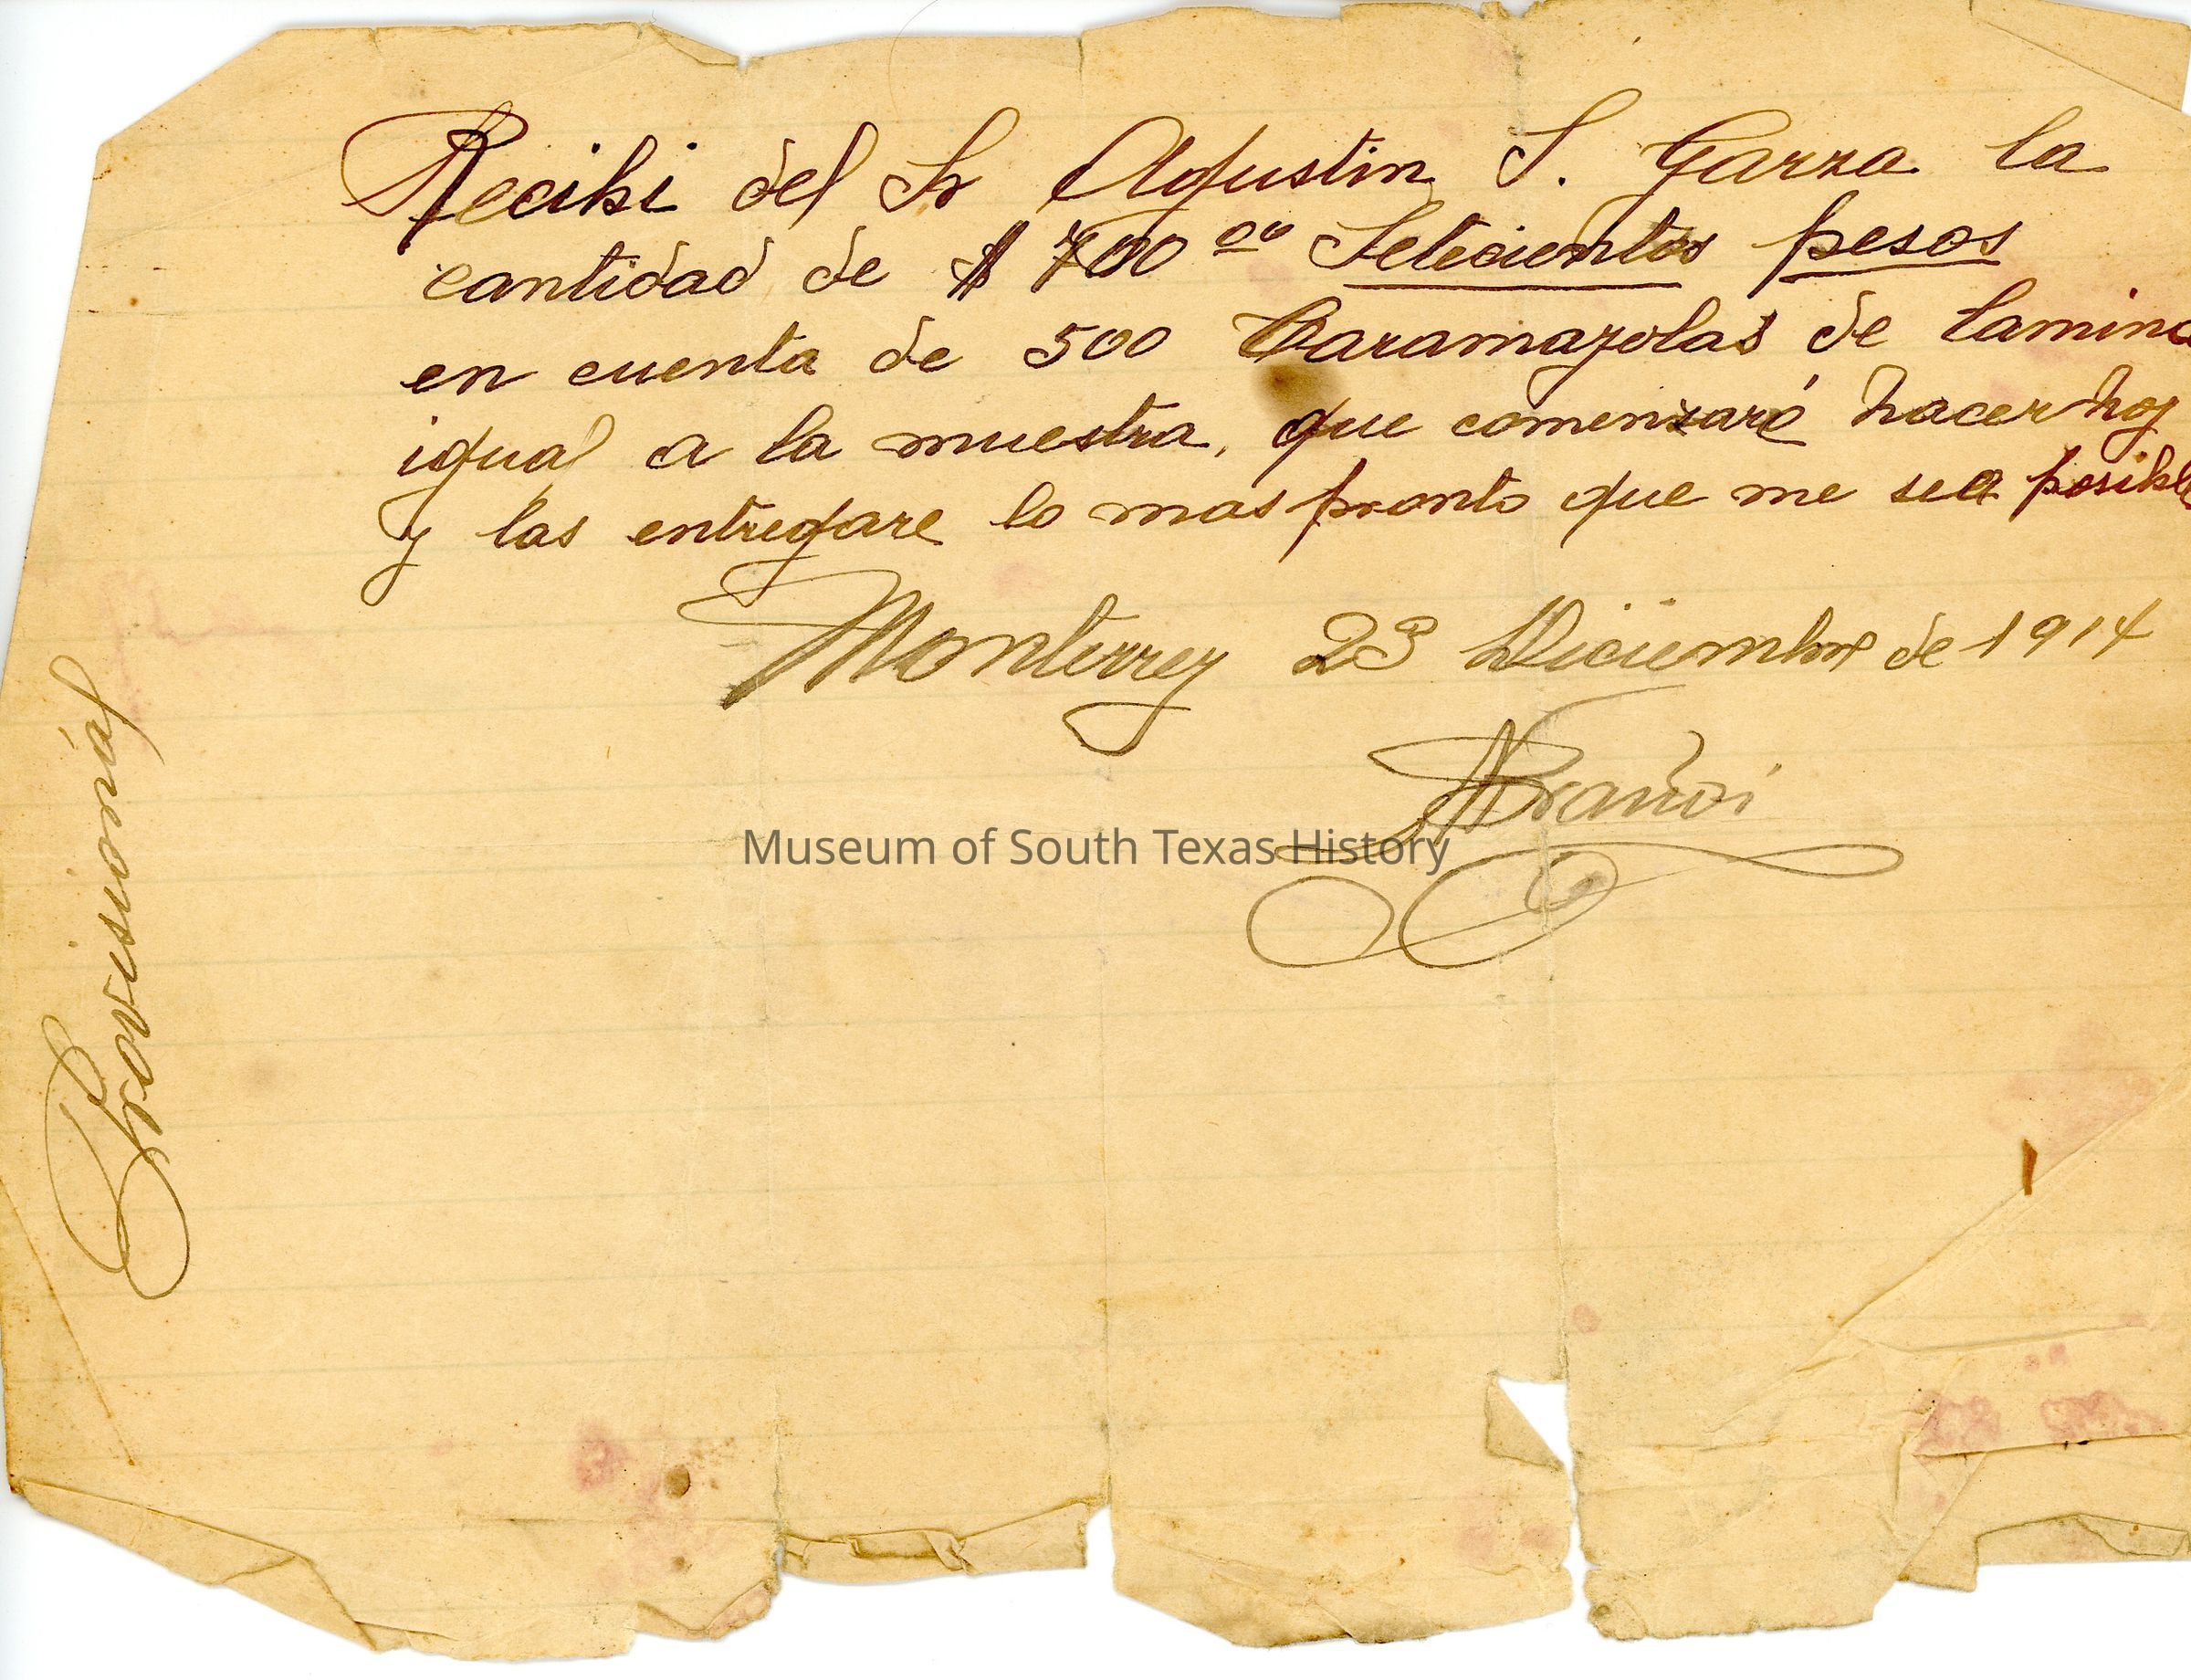 Recibi del Sr Agustin S. Garza la
cantidad de $ 700 00 Setecientos pesos
en cuenta de 500 Caramayolas de lamina
igual a la muestra, que comenzaré hacer hoy
y las entregare lo mas pronto que me sea posible
Monterrey 23 Diciembre de 1914
Museum of South Texas History
Provisional